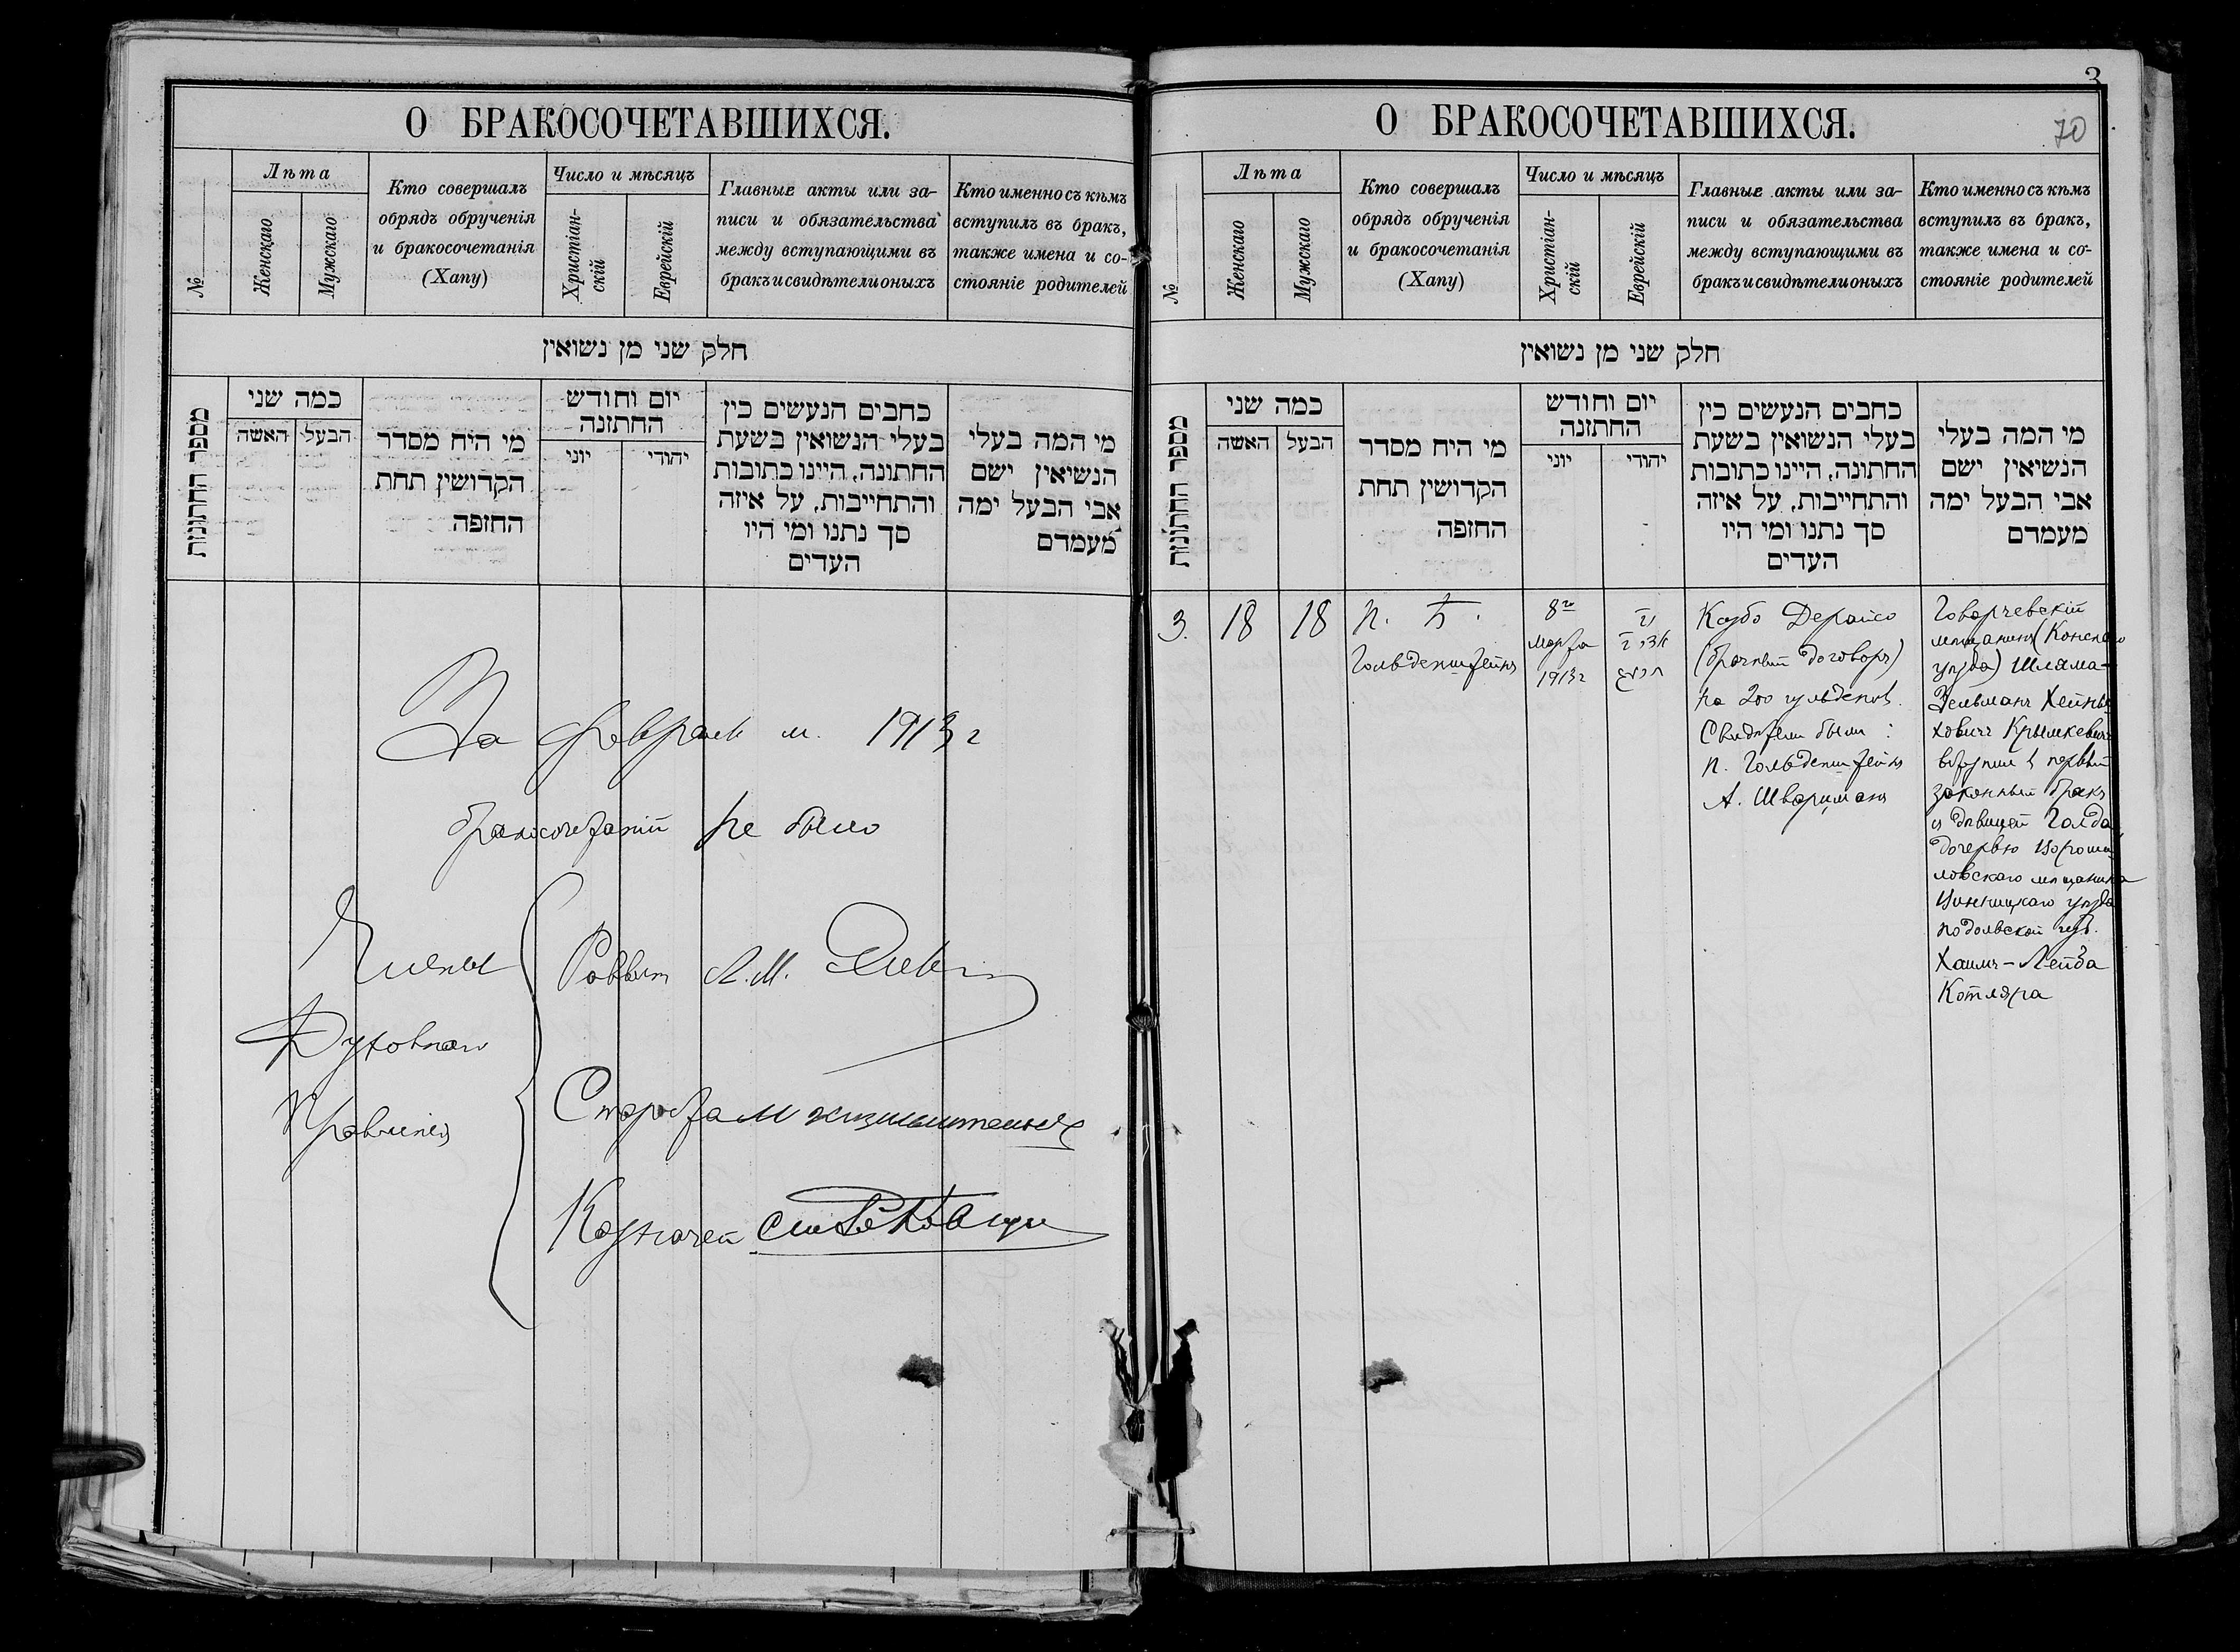 О БРАКОСОЧЕТАВШИХСЯ.
№
Лѣта
Женскаго
Мужскаго
Кто совершалъ
обрядъ обрученія
и бракосочетанія
(Хапу)
Число и мѣсяцъ
Христіан-
скій
Еврейскій
Главные акты или за-
писи и обязательства
между вступающими въ
бракъ и свидѣтели оныхъ
Кто именно съ кѣмъ
вступилъ въ бракъ,
также имена и со-
стояніе родителей
חלק שני מן נשואין
מספר החתונות
כמה שני
האשה
הבעל
מי היח מסדר
הקדושין תחת
החזפה
יום וחודש
החתזנה
יוני
יהודי
כחבים הנעשים כין
בעלי הנשואין בשעת
החתונה, היינו כתובות
והתחייבות, על איזה
סך נתנו ומי היו
העדים
מי המה בעלי
הנשיאין ישם
אבי הבעל ימה
מעמדם
За февраль м. 1913 г
бракосочетаній не было
Члены
Духовнаго
Правленія
Раввин Л.М.
Староста М
Казначей
3
70
О БРАКОСОЧЕТАВШИХСЯ.
№
Лѣта
Женскаго
Мужскаго
Кто совершалъ
обрядъ обрученія
и бракосочетанія
(Хапу)
Число и мѣсяцъ
Христіан-
скій
Еврейскій
Главные акты или за-
писи и обязательства
между вступающими въ
бракъ и свидѣтели оныхъ
Кто именно съ кѣмъ
вступилъ въ бракъ,
также имена и со-
стояніе родителей
חלק שני מן נשואין
מספר החתונות
כמה שני
האשה
הבעל
מי היח מסדר
הקדושין תחת
החזפה
יום וחודש
החתזנה
יוני
יהודי
כחבים הנעשים כין
בעלי הנשואין בשעת
החתונה, היינו כתובות
והתחייבות, על איזה
סך נתנו ומי היו
העדים
מי המה בעלי
הנשיאין ישם
אבי הבעל ימה
מעמדם
3.
18
18
П. Б.
Гольденштейнъ
8го
Марта
1913 г
אדר
Касбо Дерайсо
(брачный договоръ)
на 200 гульденов.
Свидѣтели были :
П. Гольденштейнъ
А. Шварцманъ
Говарчевскій
мѣщанинъ (Конскаго
уѣзда) Шлама-
Зельманъ Хейны-
ховичъ Крымкевичъ
вступил в первый
законный бракъ
съ дѣвицей Голда,
дочерью Ворошы-
ловскаго мѣщанина
Винницкаго уѣзда
Подольской губ.
Хаимъ-Лейба
Котляра